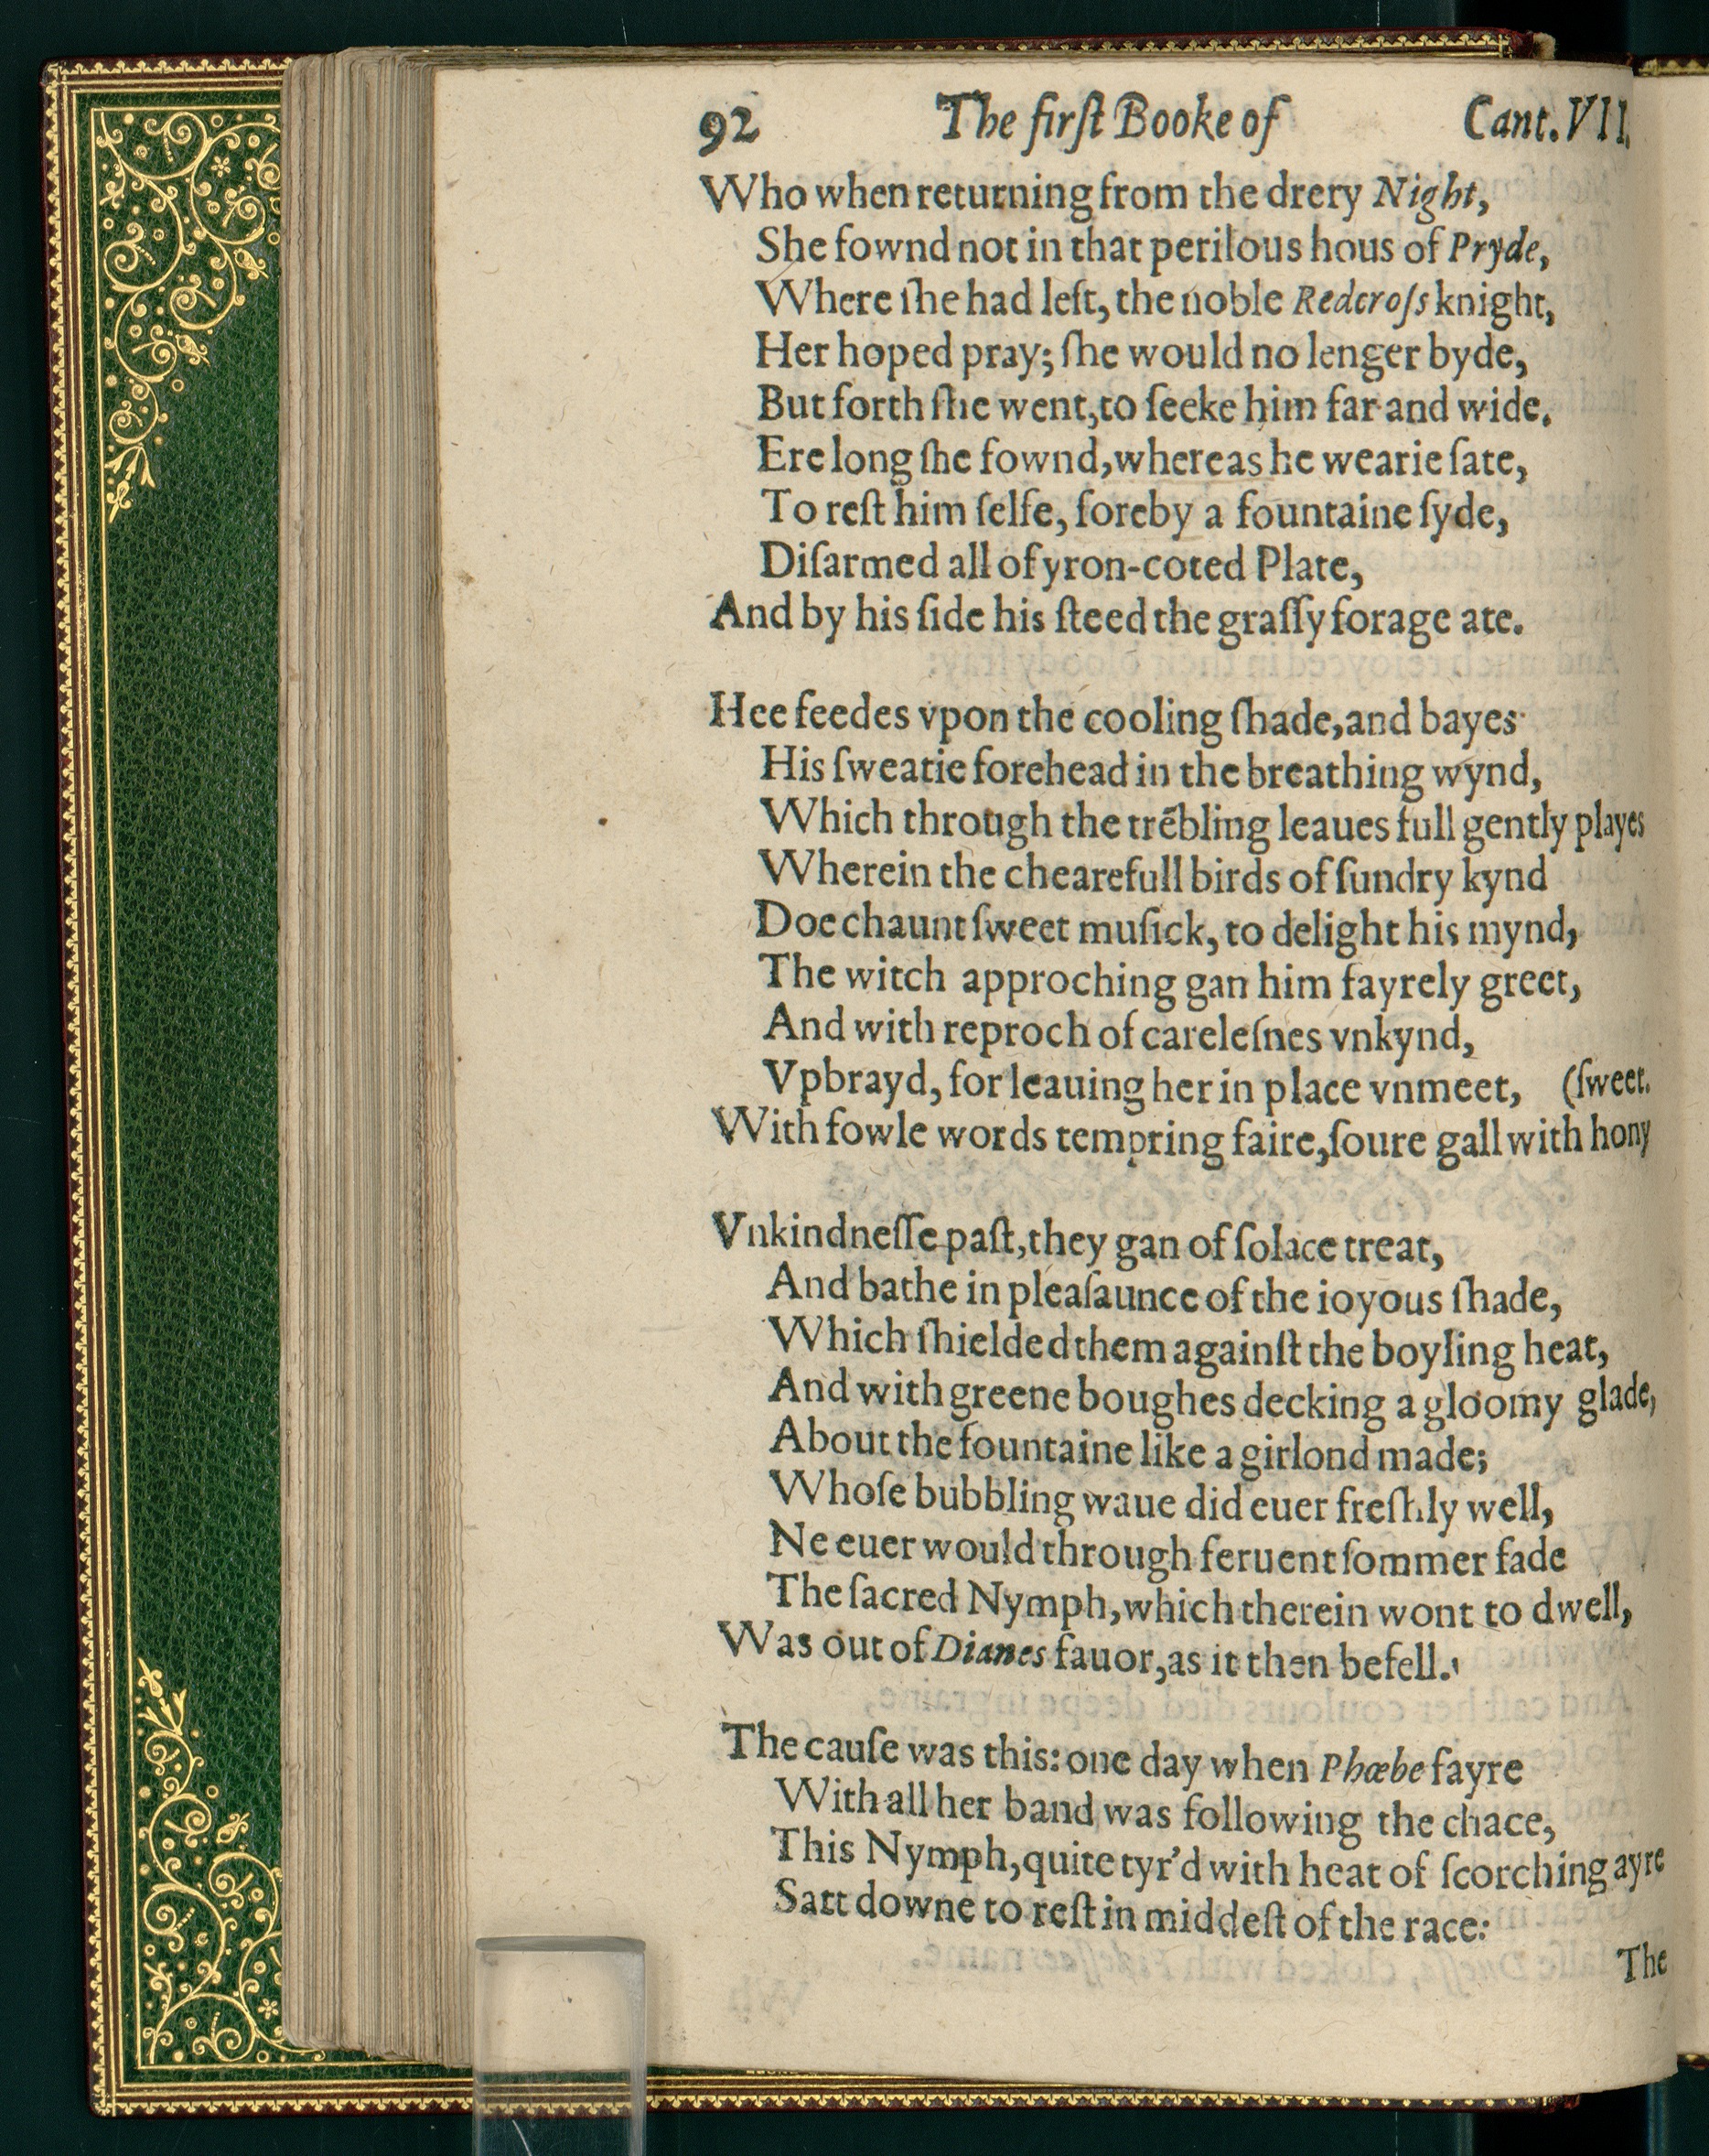 92 The firſt Booke of Cant. VII.
Who when returning from the drery Night,
She fownd not in that perilous hous of Pryde,
Where ſhe had left, the noble Redcroſs knight,
Her hoped pray; ſhe would no lenger byde,
But forth ſhe went, to ſeeke him far and wide.
Ere long ſhe fownd, whereas he wearie ſate,
To reſt him ſelfe, foreby a fountaine ſyde,
Diſarmed all of yron-coted Plate,
And by his ſide his ſteed the graſſy forage ate.
Hee feedes vpon the cooling ſhade, and bayes
His ſweatie forehead in the breathing wynd,
Which through the trẽbling leaues full gently playes
Wherein the chearefull birds of ſundry kynd
Doe chaunt ſweet muſick, to delight his mynd,
The witch approching gan him fayrely greet,
And with reproch of careleſnes vnkynd,
Vpbrayd, for leauing her in place vnmeet, (ſweet.
With fowle words tempring faire, ſoure gall with hony
Vnkindneſſe paſt, they gan of ſolace treat,
And bathe in pleaſaunce of the ioyous ſhade,
Which ſhielded them againſt the boyling heat,
And with greene boughes decking a gloomy glade,
About the fountaine like a girlond made;
Whoſe bubbling waue did euer freſhly well,
Ne euer would through feruent ſommer fade
The ſacred Nymph, which therein wont to dwell,
Was out of Dianes fauor, as it then befell.
The cauſe was this: one day when Phœbe fayre
With all her band was following the chace,
This Nymph, quite tyr'd with heat of ſcorching ayre
Satt downe to reſt in middeſt of the race:
The